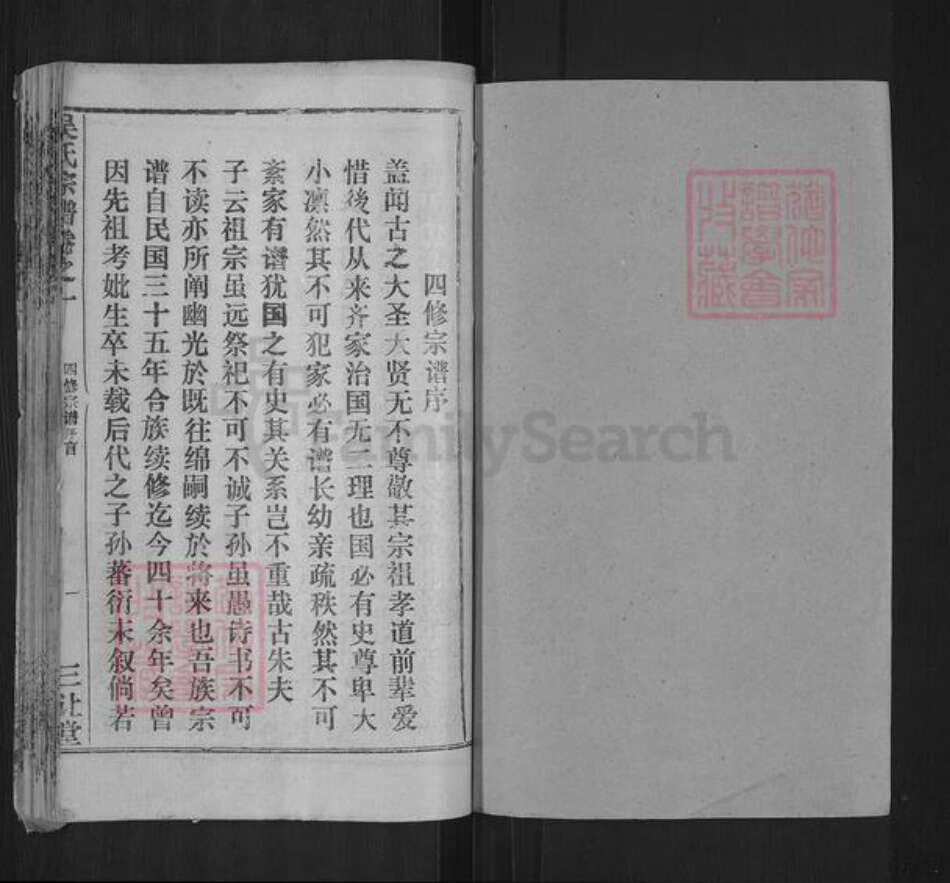 四修宗谱序
盖闻古之大圣大贤无不尊敬其宗祖孝道前辈爱
惜後代从来齐家治国无二理也国必有史尊卑大
小凛然其不可犯家必有谱长幼亲疏秩然其不可
紊家有谱犹国之有史其关系岂不重哉古朱夫
子云祖宗虽远祭祀不可不诚子孙虽愚诗书不可
不读亦所阐幽光於既往绵嗣续於将来也吾族宗
谱自民国三十五年合族续修迄今四十余年矣曾
因先祖考妣生卒未载后代之子孙蕃衍未叙倘若
吴氏宗谱卷之一
四修宗谱
一
三让堂
FamilySearch